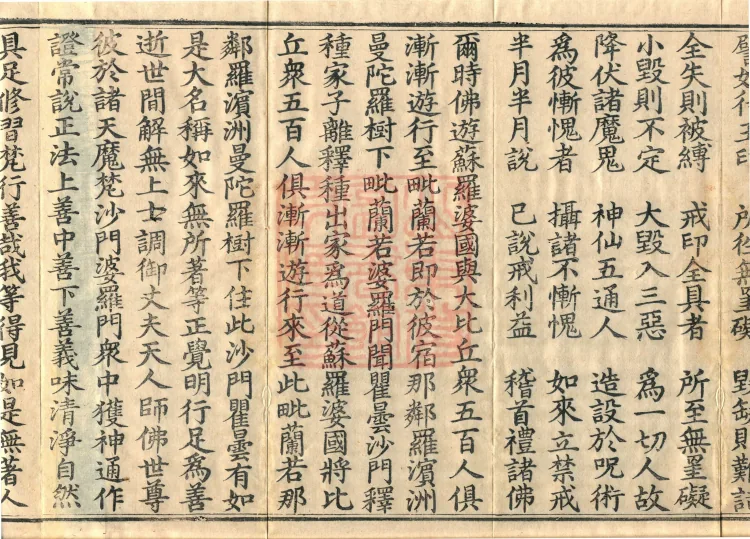 如 印 所往無罣礙 則難
全失則被縛 戒印全具者 所至無罣礙
小毀則不定 大毀入三惡 爲一切人故
降伏諸魔鬼 神仙五通人 造設於呪術
爲彼慚愧者 攝諸不慚愧 如來立禁戒
半月半月說 已說戒利益 稽首禮諸佛
爾時佛遊蘇羅婆國與大比丘衆五百人俱
漸漸遊行至毗蘭若即於彼宿那鄰羅濱洲
曼陀羅樹下毗蘭若婆羅門聞瞿曇沙門釋
種家子離釋種出家爲道從蘇羅婆國將比
丘衆五百人俱漸漸遊行來至此毗蘭若那
鄰羅濱洲曼陀羅樹下住此沙門瞿曇有如
是大名稱如來無所著等正覺明行足爲善
逝世間解無上士調御丈夫天人師佛世尊
彼於諸天魔梵沙門婆羅門衆中獲神通作
證常說正法上善中善下善義味清淨自然
具足修習梵行善哉我等得見如是無著人